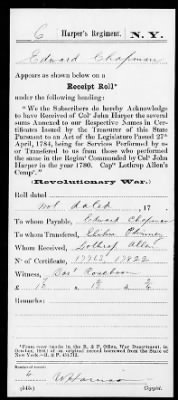 C Harper's Regiment. N.Y.
Edward Chapman
Appears as shown below on a
Receipt Roll*
under the following heading:
"We the Subscribers do hereby Acknowledge
to have Received of Col° John Harper the several
sums Annexed to our Respective Names in Cer-
tificates Issued by the Treasurer of this State
Pursuant to an Act of the Legislature Passed 27th
April, 1784, being for Services Performed by us
or Transferred to us from those who performed
the same in the Regim^t Commanded by Col° John
Harper in the year 1780. Cap^n Lothrop Allen's
Comp^y."
(Revolutionary War.)
Roll
not dated, 17 .
To whom Payable, Edward Chapman
To whom Transferred, Elisha
Whom Received, Lothrop Allen
N° of Certificate, 17822
Witness, Bas^t Roseboom
£ s. d.
Remarks:
*From case tanks in the R. & P. Office, War Department, in
Number of roll:
6
W Harrison
(545b) Copyist.